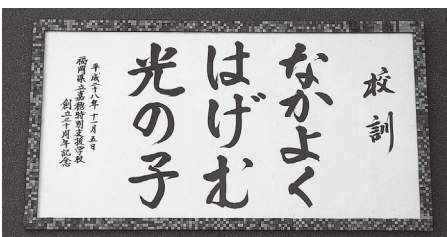 校訓
なかよく
はげむ
光の子
平成二十八年十一月五日
福岡県立嘉穂特別支援学校
創立三十周年記念